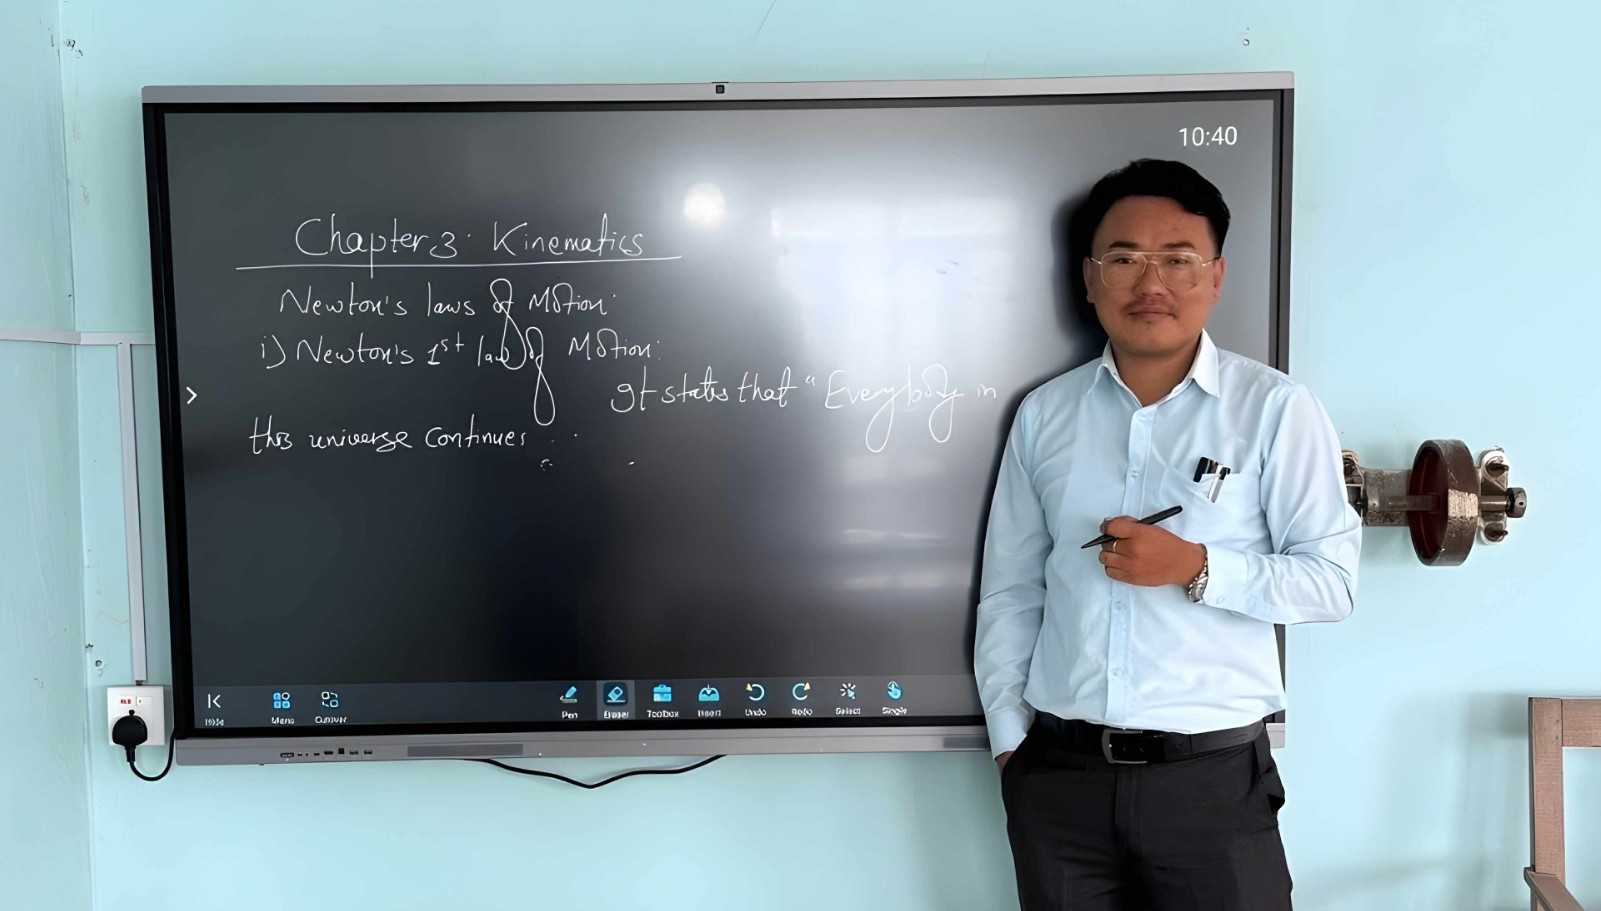 10:40
Chapter 3: Kinematics
Newton's laws of Motion:
i) Newton's 1st law of Motion:
It states that "Every body in
this universe continues . .
Menu
Pen Eraser Toolbox Insert Undo Redo Select